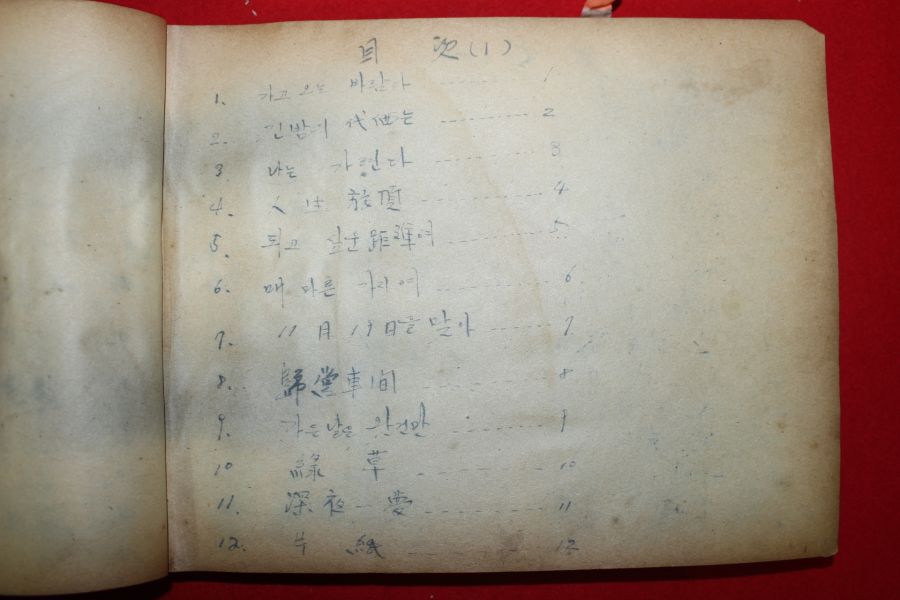 目 次 (1)
1. 가고 오는 바람아 1
2. 긴밤의 代価는 2
3 나는 가련다 3
4. 人生 放値 4
5. 되고 싶은 距離여 5
6. 메마른 가지여 6
7. 11月 19日을 맞아 7
8. 歸堂車間 8
9. 가는날은 왔건만 9
10 綠草 10
11. 深夜一愛 11
12. 片紙 12